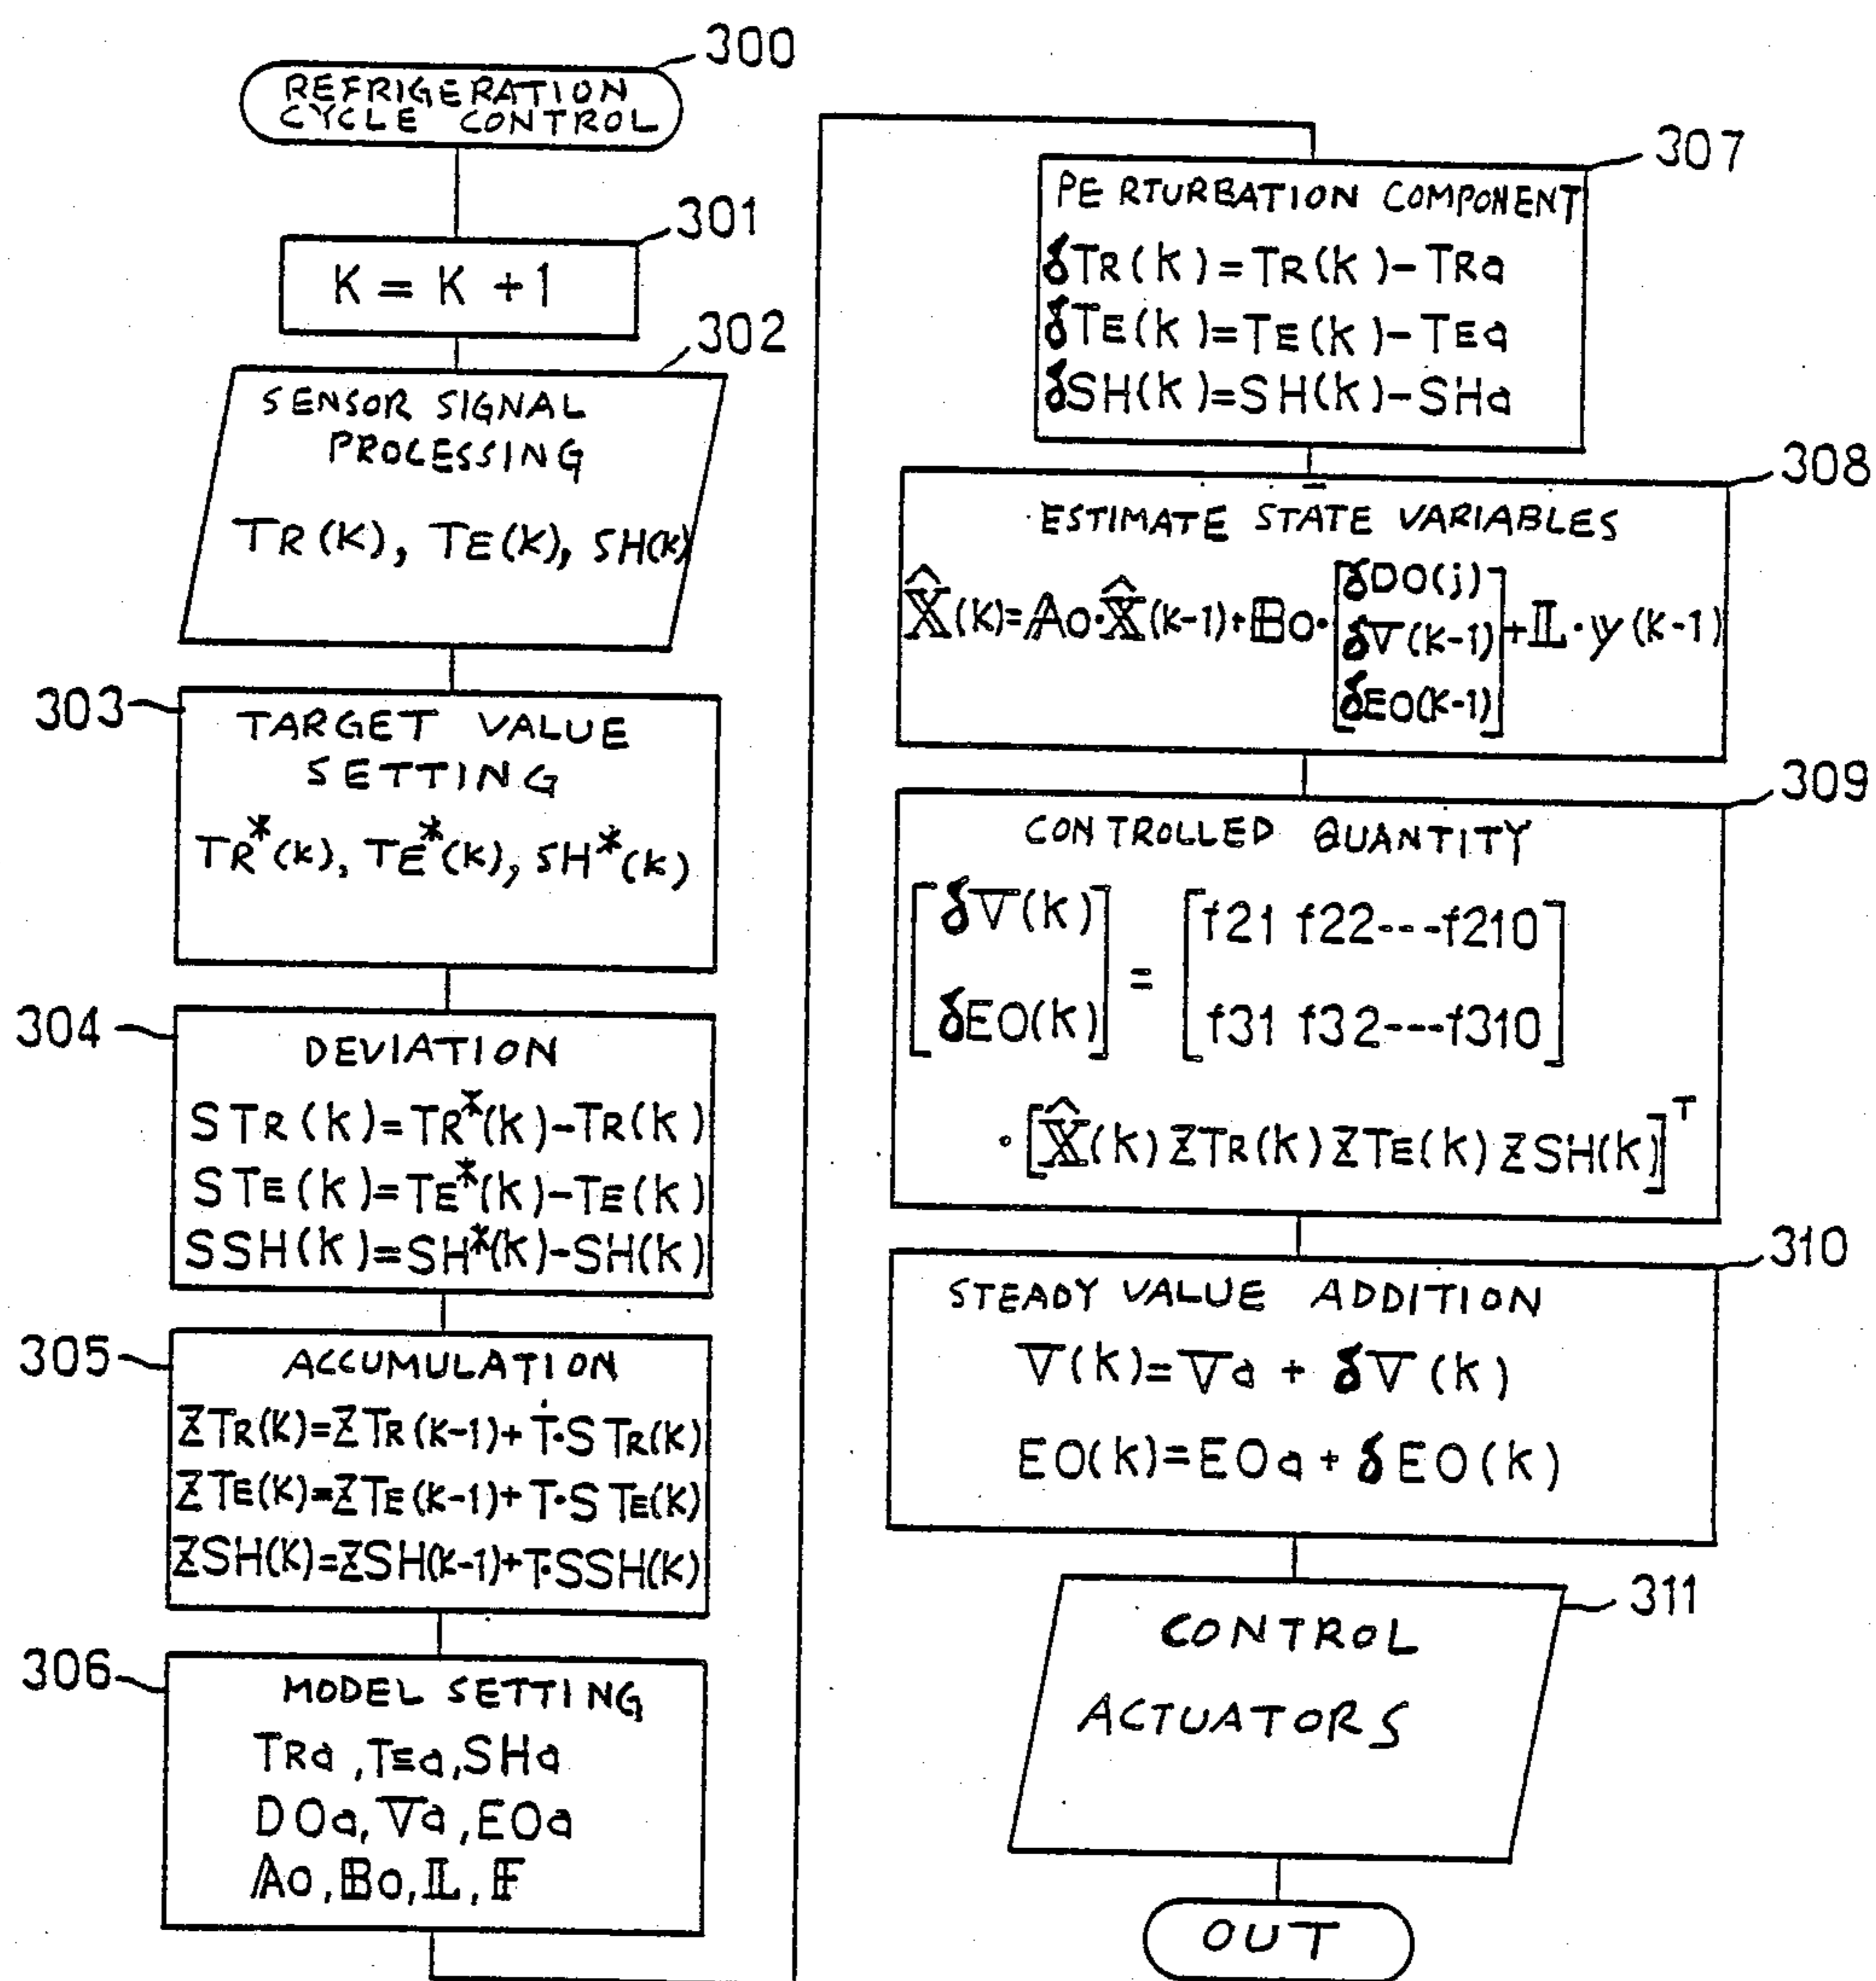 300
REFRIGERATION
CYCLE CONTROL
301
K = K +1
302
SENSOR SIGNAL
PROCESSING
TR(K), TE(K), SH(K)
303
TARGET VALUE
SETTING
TR*(K), TE*(K), SH*(K)
304
DEVIATION
STR(K)=TR*(K)-TR(K)
STE(K)=TE*(K)-TE(K)
SSH(K)=SH*(K)-SH(K)
305
ACCUMULATION
ZTR(K)=ZTR(K-1)+T·STR(K)
ZTE(K)=ZTE(K-1)+T·STE(K)
ZSH(K)=ZSH(K-1)+T·SSH(K)
306
MODEL SETTING
TRa, TEa, SHa
DOa, Va, EOa
𝔸o, 𝔹o, 𝕃, 𝔽
307
PERTURBATION COMPONENT
δTR(K)=TR(K)-TRa
δTE(K)=TE(K)-TEa
δSH(K)=SH(K)-SHa
308
ESTIMATE STATE VARIABLES
δDO(j)
𝕏̂(K)=𝔸o·𝕏̂(K-1)+𝔹o·[δV(K-1)]+𝕃·y(K-1)
δEO(K-1)
309
CONTROLLED QUANTITY
[δV(K)] [f21 f22---f210]
=
[δEO(K)] [f31 f32---f310]
·[𝕏̂(K) ZTR(K) ZTE(K) ZSH(K)]T
310
STEADY VALUE ADDITION
V(K)=Va + δV(K)
EO(K)=EOa + δEO(K)
311
CONTROL
ACTUATORS
OUT